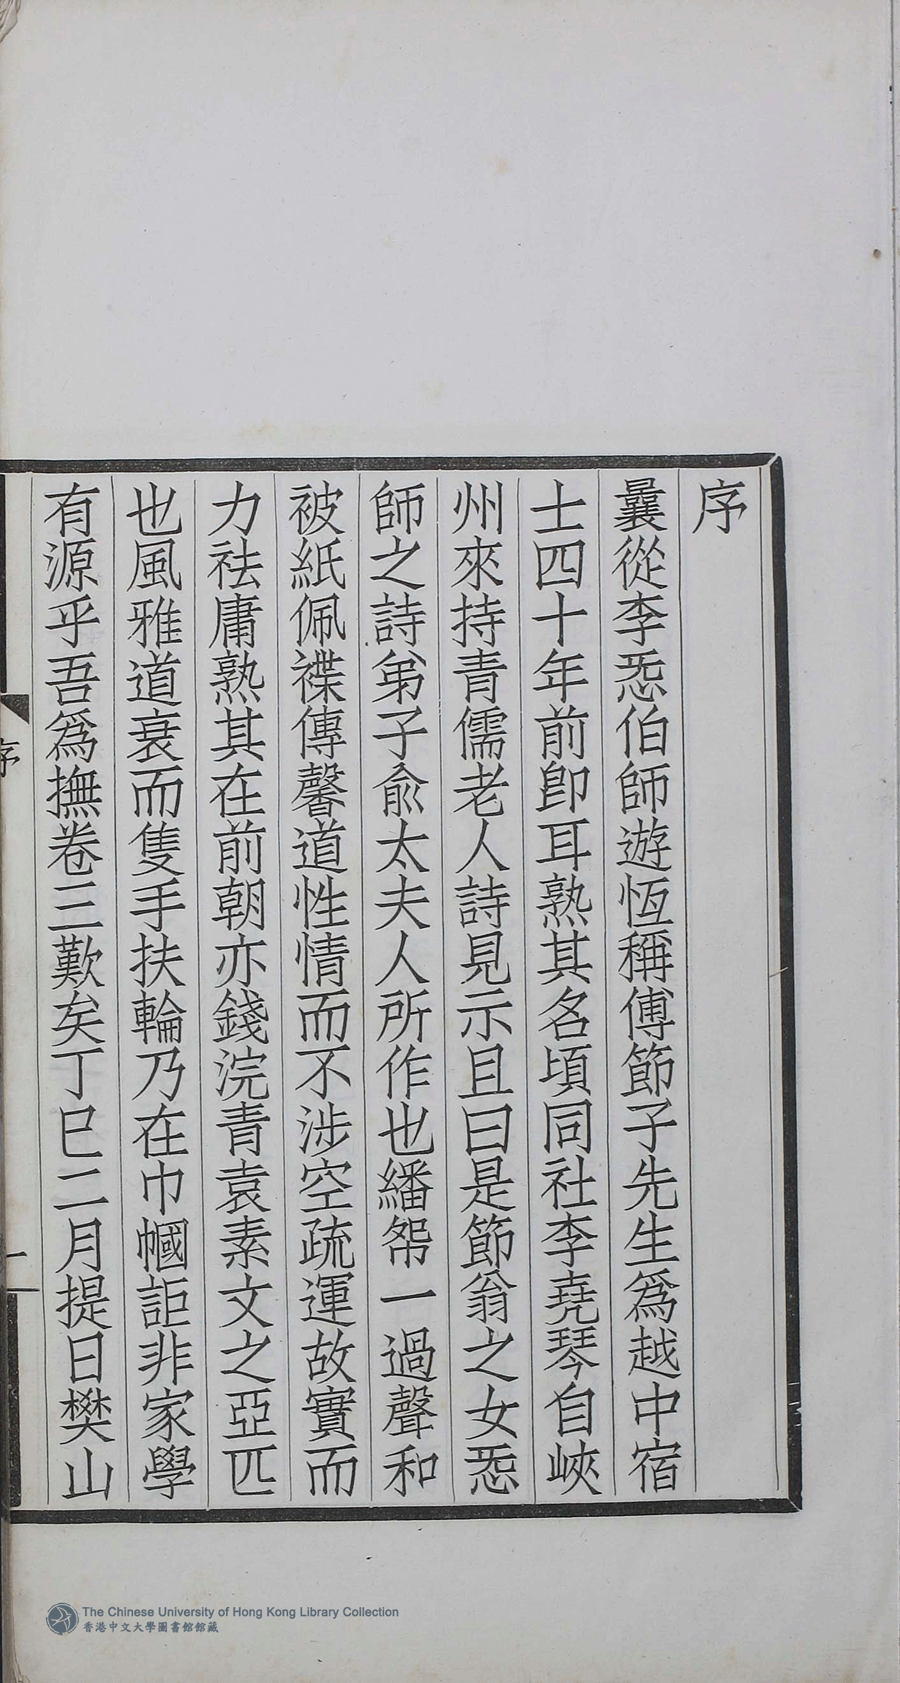 序
曩從李㤅伯師遊恆稱傅節子先生爲越中宿
士四十年前卽耳熟其名頃同社李堯琴自峽
州來持青儒老人詩見示且曰是節翁之女㤅
師之詩弟子俞太夫人所作也繙帤一過聲和
被紙佩襟傳馨道性情而不涉空疏運故實而
力祛庸熟其在前朝亦錢浣青袁素文之亞匹
也風雅道衰而隻手扶輪乃在巾幗詎非家學
有源乎吾爲撫卷三歎矣丁巳二月提日樊山
序
一
The Chinese University of Hong Kong Library Collection
香港中文大學圖書館館藏